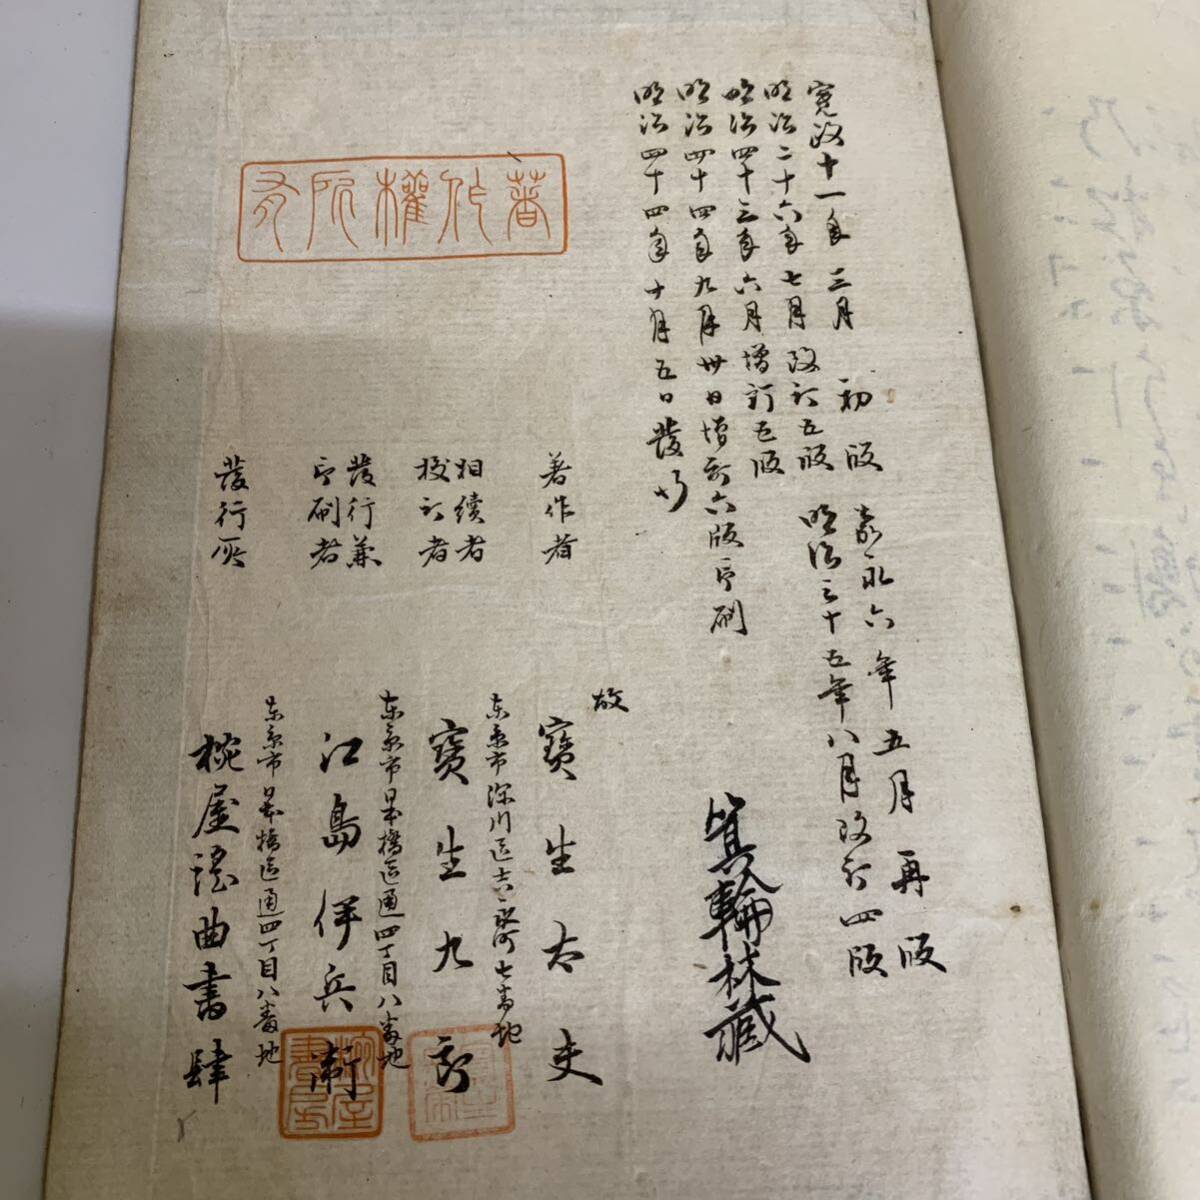 寛政十一年三月 初版
嘉永六年五月 再版
明治二十六年七月改訂三版
明治三十五年八月改訂四版
明治四十三年六月増訂五版
明治四十四年九月卅日増訂六版印刷
明治四十四年十月五日發行
箕輪林藏
著作權所有
著作者
故
寶生太夫
相續者
校訂者
東京市深川區
七番地
寶生九郎
發行兼
印刷者
東京市日本橋區通四丁目八番地
江島伊兵衞
東京市日本橋區通四丁目八番地
發行所
椀屋謠曲書肆